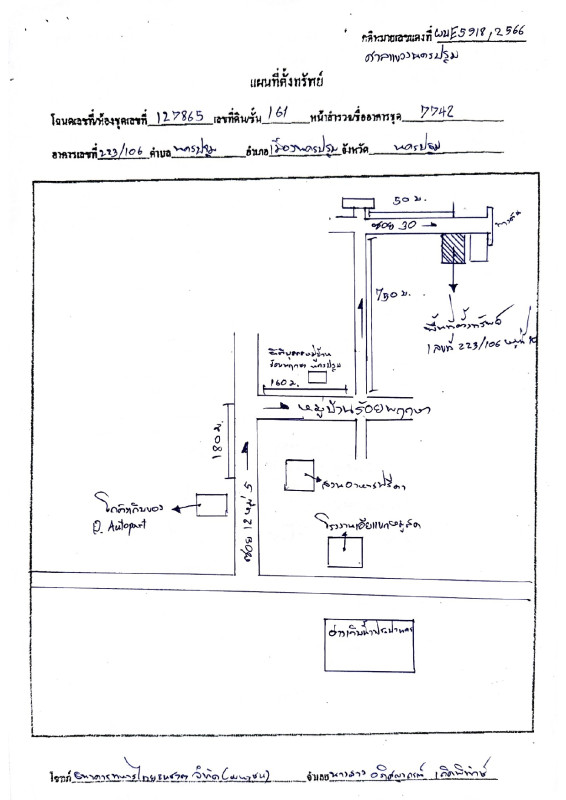 คดีหมายเลขแดงที่ ผบE5918/2566
ศาลแขวงนครปฐม
แผนที่ตั้งทรัพย์
โฉนดเลขที่/ห้องชุดเลขที่ 127865 เลขที่ดิน/ชั้น 161 หน้าสำรวจ/ชื่ออาคารชุด 7742
อาคารเลขที่ 223/106 ตำบล นครปฐม อำเภอ เมืองนครปฐม จังหวัด นครปฐม
50 ม.
ซอย 30
750 ม.
พื้นที่ตั้งทรัพย์
เลขที่ 223/106 หมู่ที่
นิติบุคคลหมู่บ้าน
ร้อยพฤกษา นครปฐม
160 ม.
หมู่บ้านร้อยพฤกษา
180 ม.
ซอย 12 หมู่ 5
สวนอาหารปรีดา
โกดังเก็บของ
Q. Autopart
โรงงาน
โจทก์ ธนาคารทหารไทยธนชาต จำกัด (มหาชน) จำเลย นางสาว